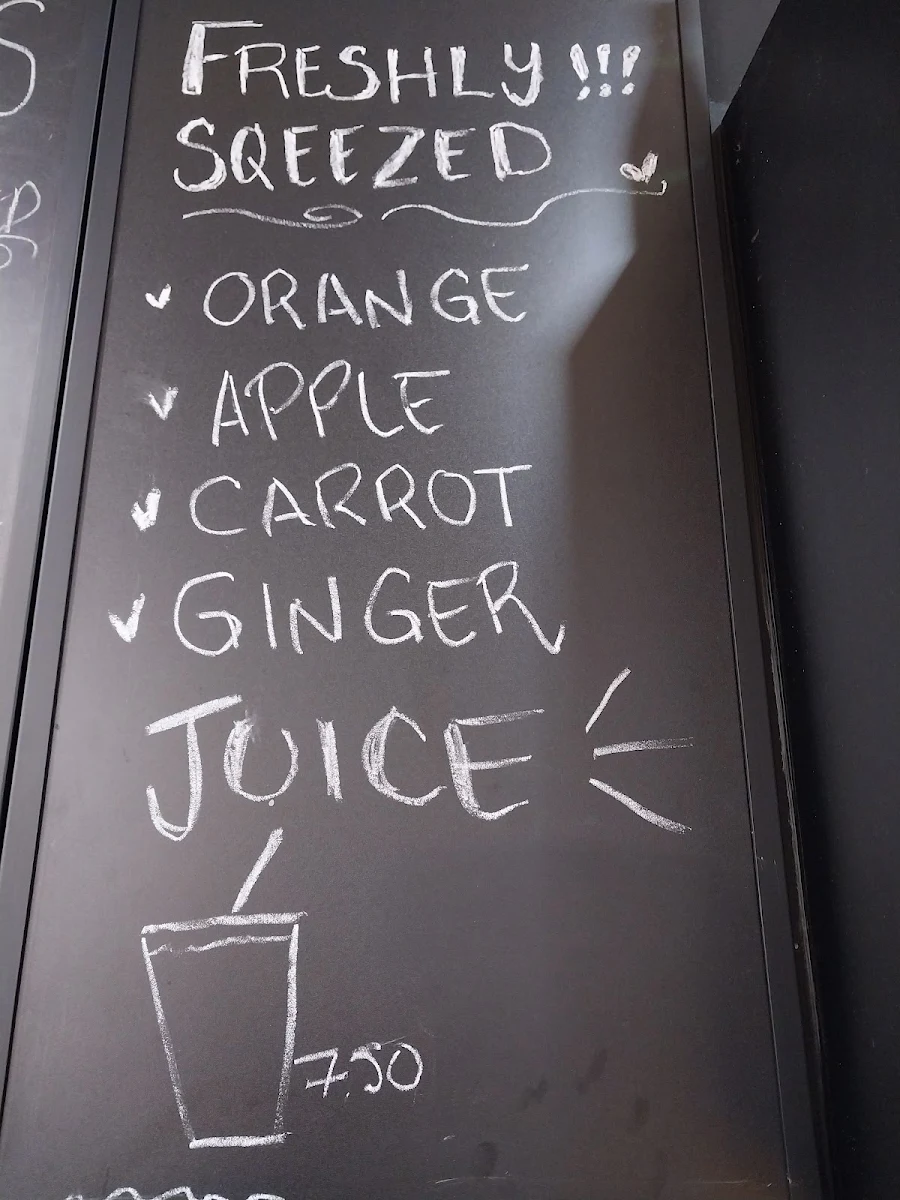 FRESHLY !!!
SQEEZED
ORANGE
APPLE
CARROT
GINGER
JUICE
7.50